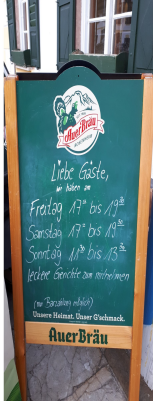 AuerBräu
Liebe Gäste,
wir haben am
Freitag 17⁰⁰ bis 19³⁰
Samstag 17⁰⁰ bis 19³⁰
Sonntag 11³⁰ bis 13³⁰
leckere Gerichte zum mitnehmen
(nur Barzahlung möglich)
Unsere Heimat. Unser G'schmack.
AuerBräu